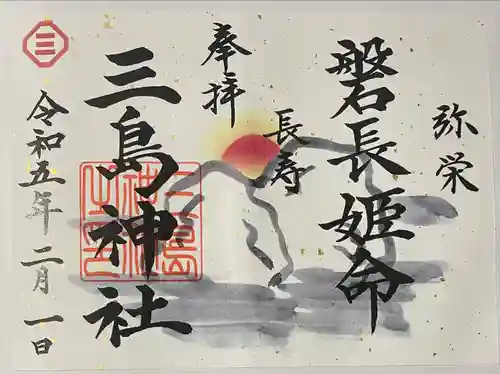 弥栄
磐長姫命
長寿
奉拝
三島神社
令和五年二月一日
三